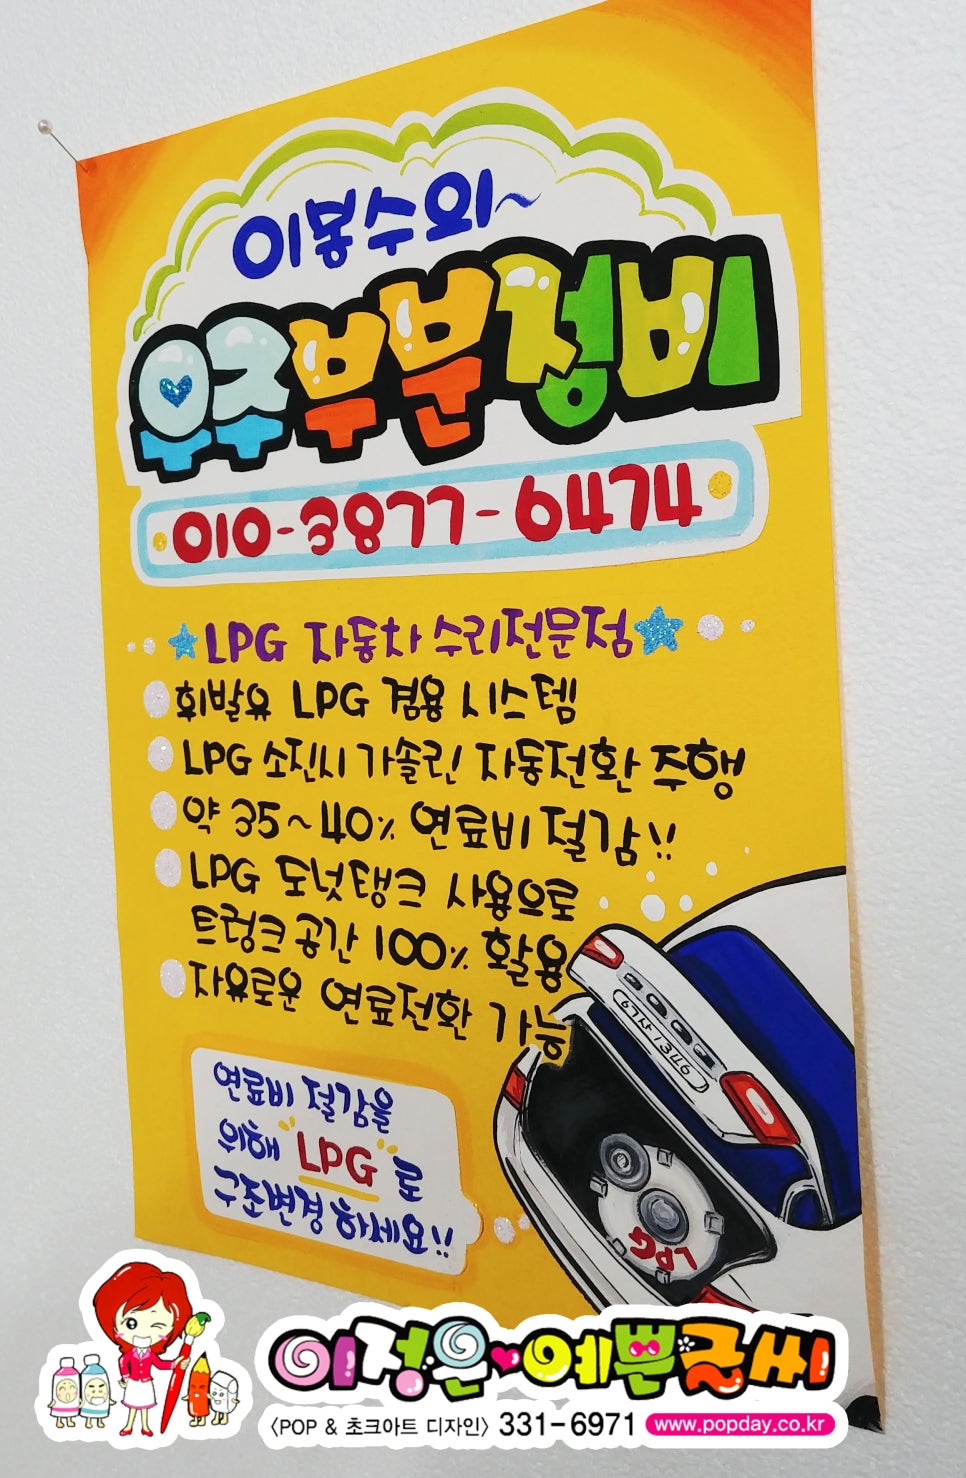 이봉수의~
우주부분정비
010-3877-6474
LPG 자동차 수리전문점
휘발유 LPG 겸용 시스템
LPG 소진시 가솔린 자동전환 주행
약 35~40% 연료비 절감!!
LPG 도넛탱크 사용으로
트렁크 공간 100% 활용
자유로운 연료전환 가능
67사 1346
LPG
연료비 절감을
위해 "LPG"로
구조변경 하세요!!
이정은♥예쁜글씨
〈POP & 초크아트 디자인〉 331-6971 www.popday.co.kr